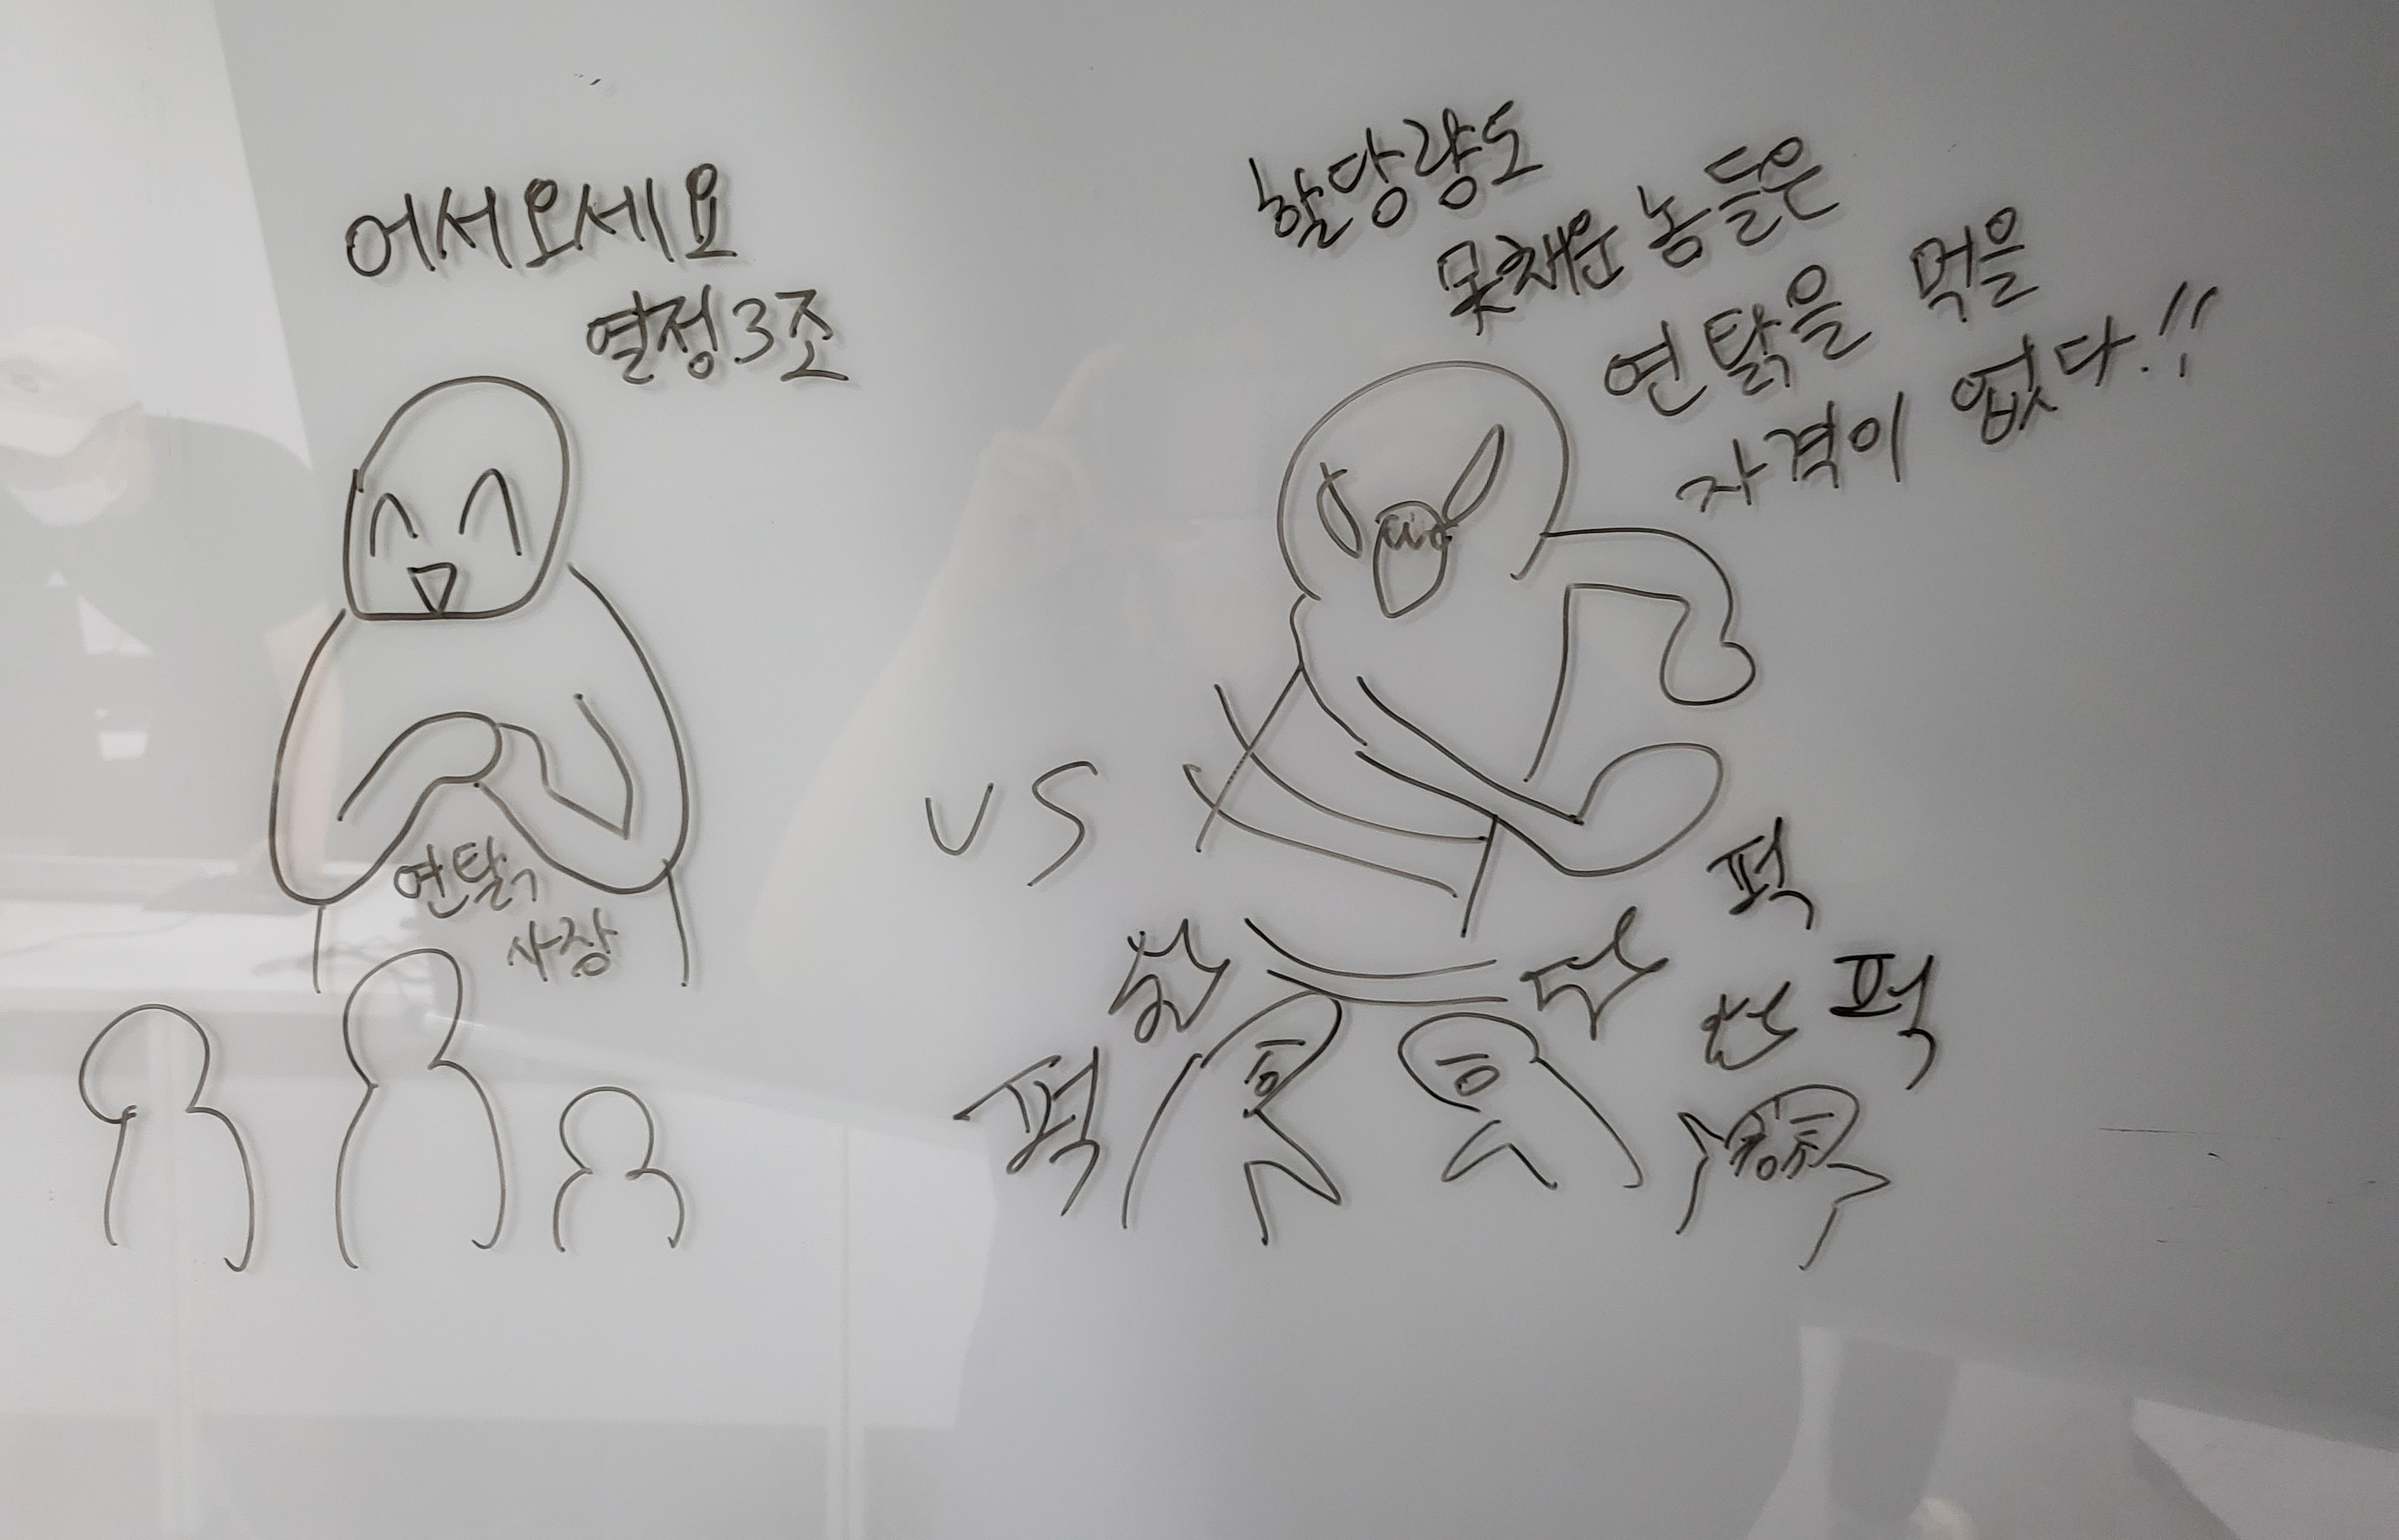 어서오세요
열정3조
연탉
사장
VS
할당량도
못채운 놈들은
연탉을 먹을
자격이 없다.!!
퍽
퍽
퍽